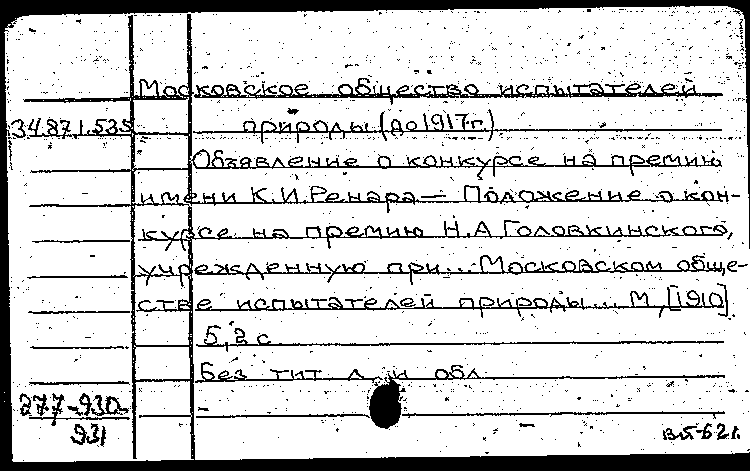 Московское общество испытателей
34.871.535 природы (до 1917г.)
Объявление о конкурсе на премию
имени К.И.Ренара — Положение о кон-
курсе на премию Н.А.Головкинского,
учрежденную при... Московском обще-
стве испытателей природы... М., [1910].
5,2 с.
Без тит. л. и обл.
277-930-
931